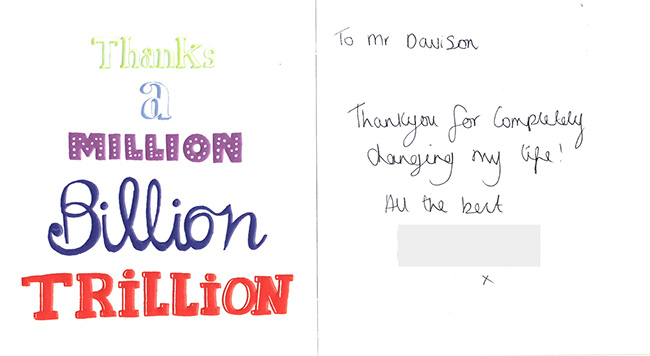 Thanks
a
MILLION
Billion
TRiLLiON
To Mr Davison
Thankyou for Completely
changing my life!
All the best
x